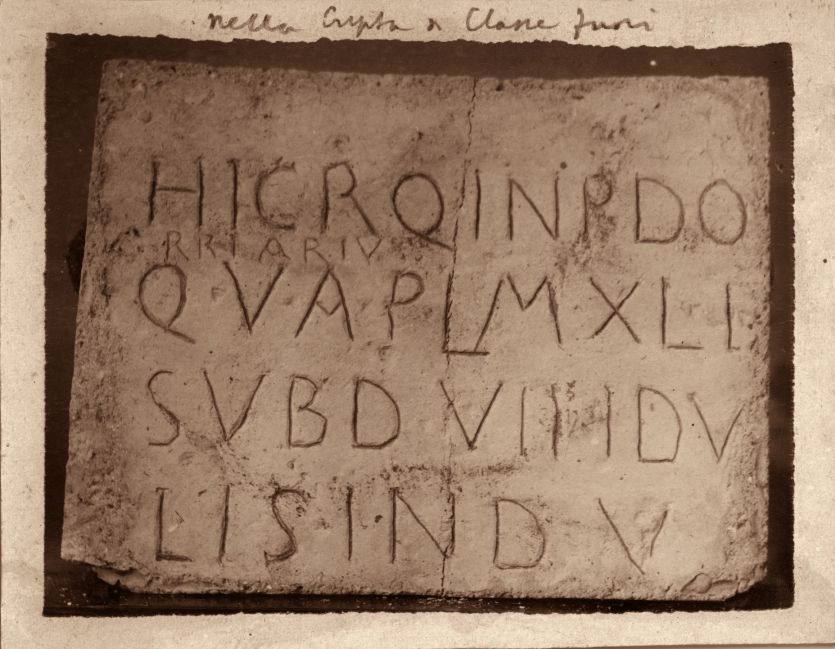 nella Cripta di Classe fuori
HIC RQ IN P DO
RRIARIV
QVAPLMXLI
SVBDVIIIIDV
LISINDV